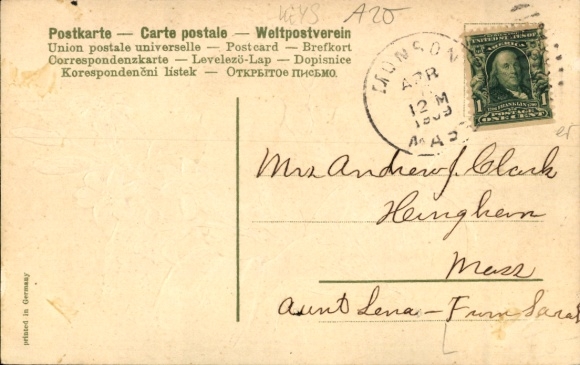 KEYS A20
Postkarte — Carte postale — Weltpostverein
Union postale universelle — Postcard — Brefkort
Correspondenzkarte — Levelező-Lap — Dopisnice
Korespondenčni listek — Открытое письмо.
MONSON
APR
12 M
1909
MAS
UNITED STATES OF AMERICA
1 FRANKLIN 1
POSTAGE ONE CENT
Mrs Andrew J. Clark
Hingham
Mass
Aunt Lena — From Sarah
printed in Germany